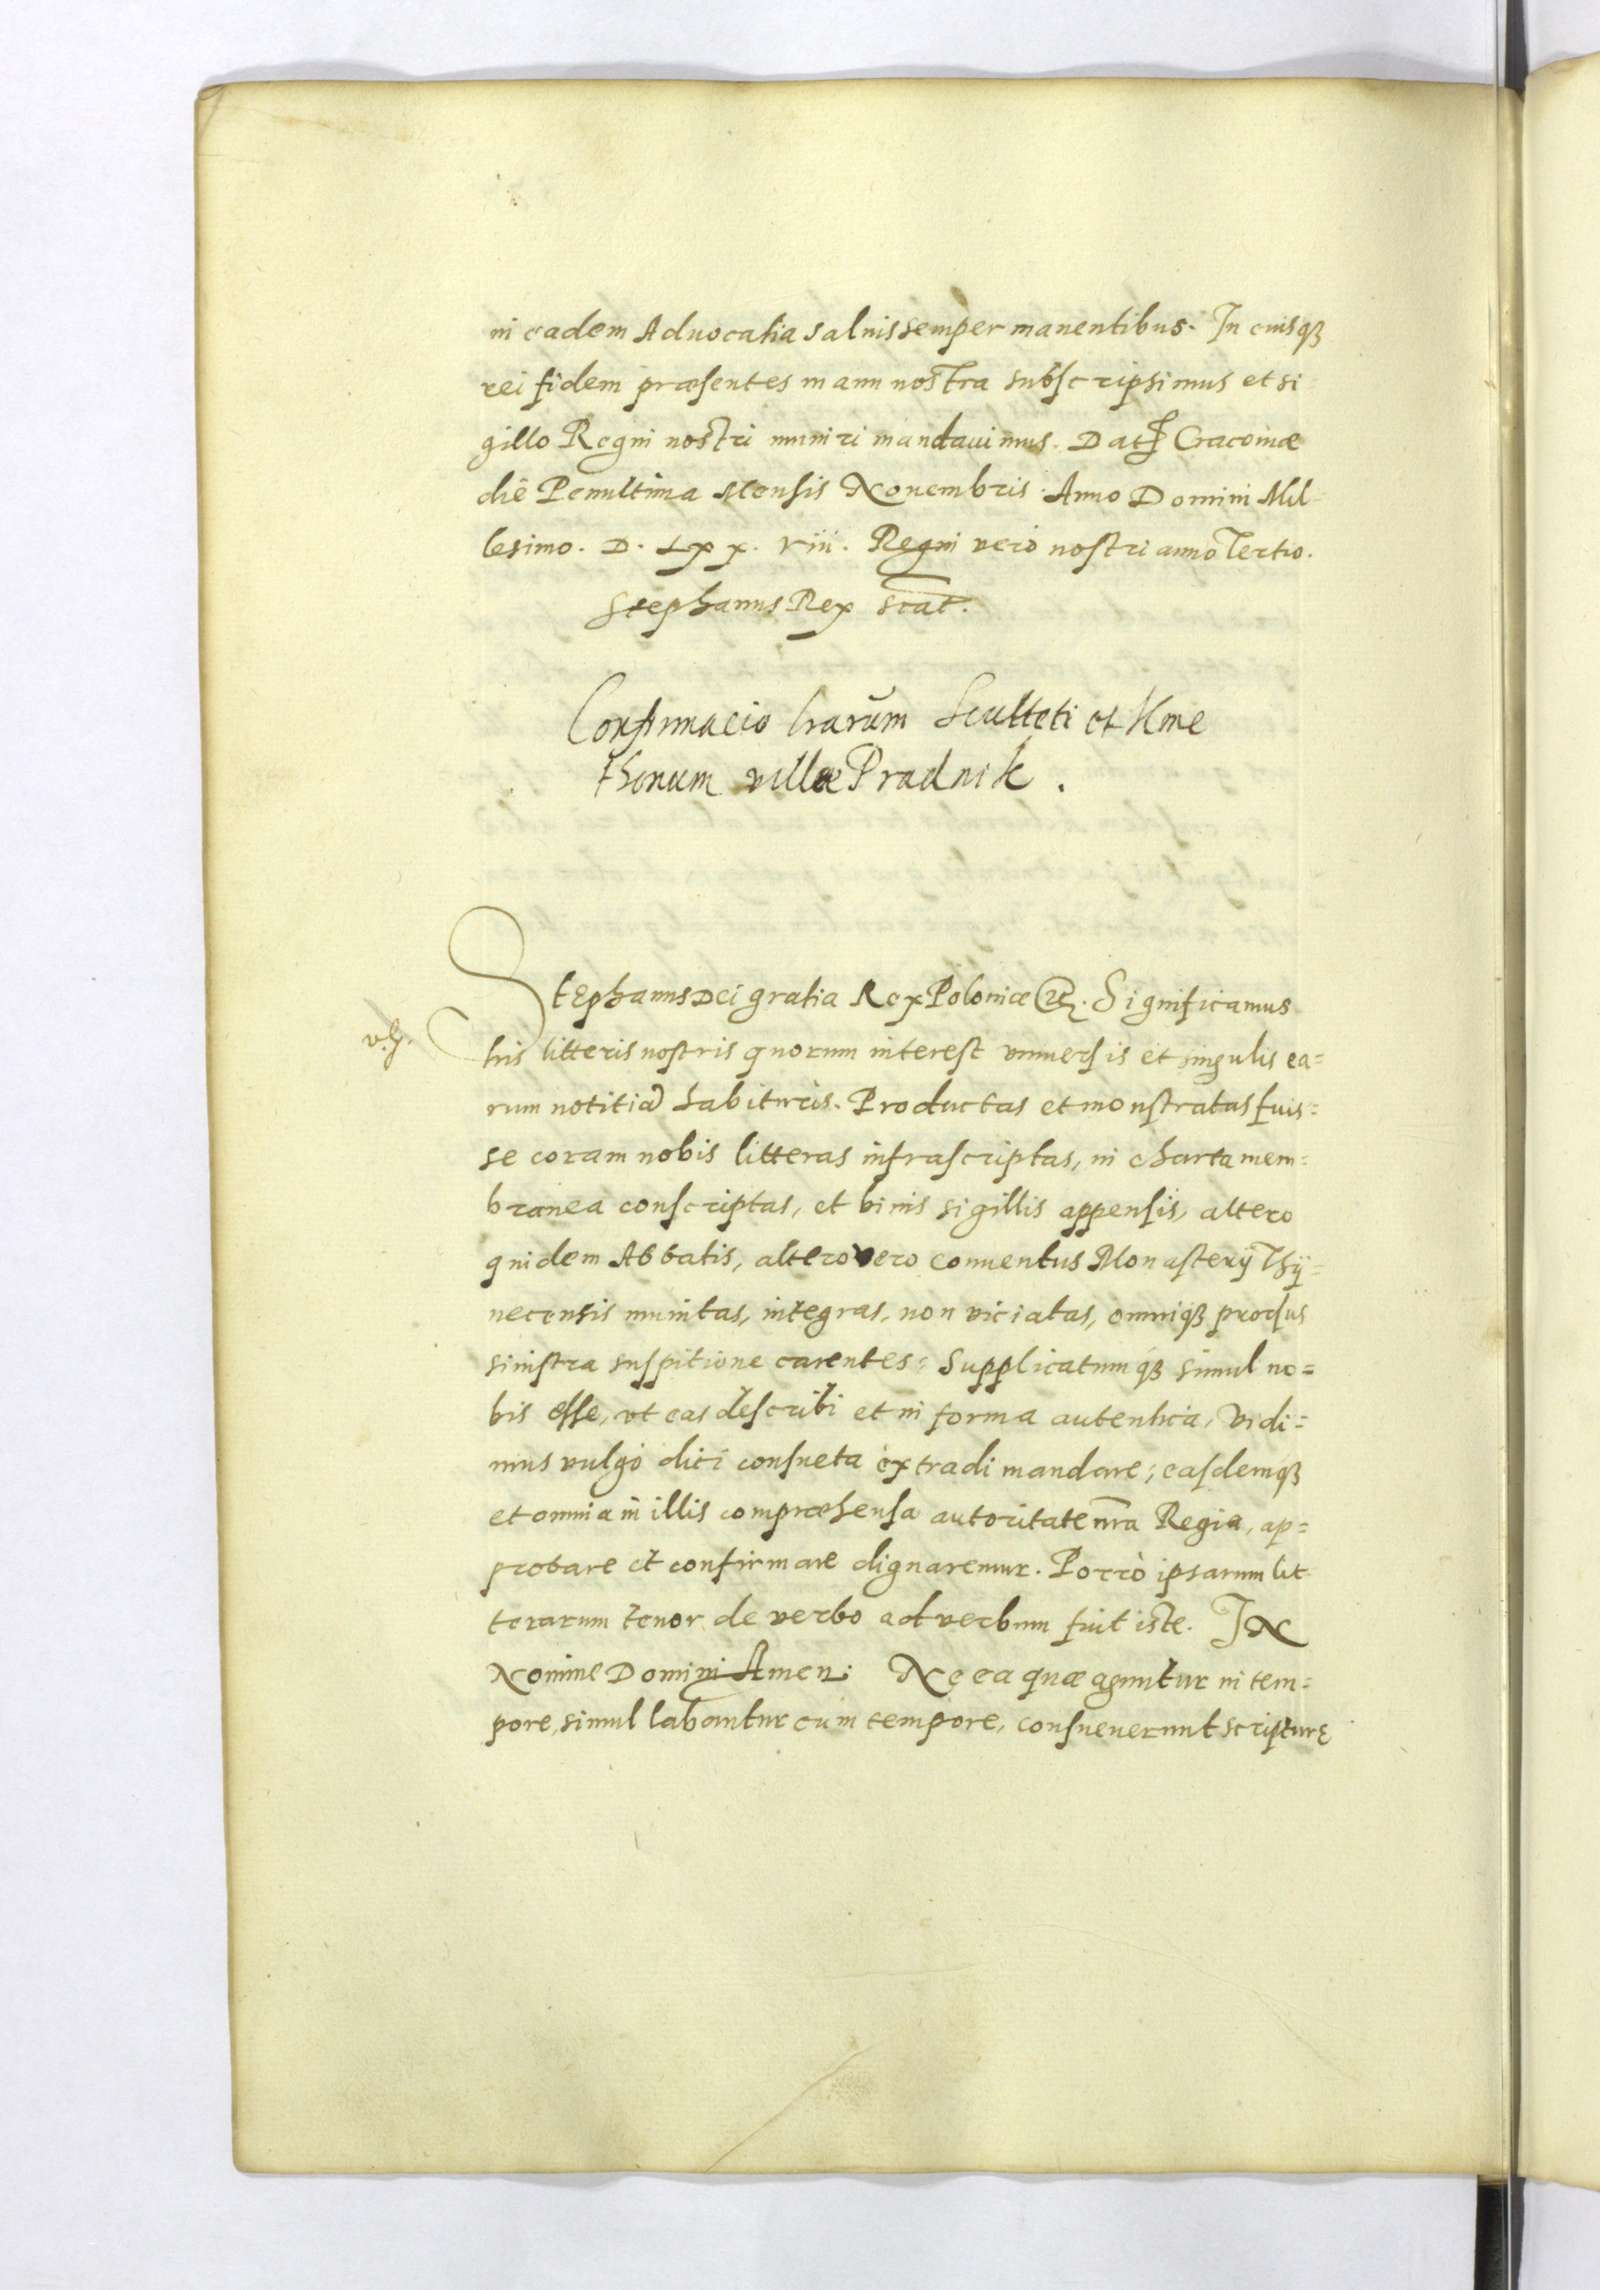 in eadem Aduocatia saluis semper manentibus. In cuisqȝ
rei fidem præsentes manu nostra subscripsimus et si
gillo Regni nostri muniri mandauimus. Dat Cracouiæ
die Penultima Mensis Nouembris Anno Domini Mil-
lesimo. D. Lxx. viii. Regni verò nostri anno Tertio.
Stephanus Rex scat.
Confirmacio lrarum Sculteti et Kme
thonum villæ Pradnik.
Stephanus Dei gratia Rex Poloniæ etc. Significamus
his litteris nostris quorum interest vniuersis et singulis ea=
rum notitiã habituris. Productas et monstratas fuis=
se coram nobis litteras infrascriptas, in charta mem=
branea conscriptas, et binis sigillis appensis, altero
quidem Abbatis, altero vero Conuentus Monasterij Thÿ=
necensis munitas, integras, non viciatas, omniqȝ prorsus
sinistra suspitione carentes: Supplicatumqȝ simul no=
bis esse, vt eas describi et in forma autentica, Vidi=
mus vulgò dici consueta extradi mandare; easdemqȝ
et omnia in illis compræhensa autoritate nra Regia, ap=
probare et confirmare dignaremur. Porrò ipsarum lit
terarum tenor de verbo ad verbum fuit iste. IN
Nomine Domini Amen. Ne ea quæ aguntur in tem=
pore, simul labantur cum tempore, consueuerunt scripturę